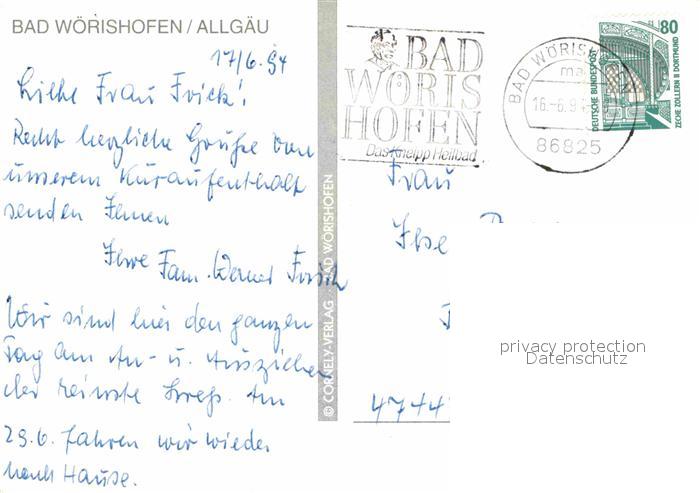 BAD WÖRISHOFEN / ALLGÄU
17/6.94
Liebe Frau Frick!
Recht herzliche Grüße von
unserem Kuraufenthalt
senden Ihnen
Ihre Fam. Werner Frisch
Wir sind hier den ganzen
Tag am An- u. Ausziehen
der reinste Streß. Am
29.6. fahren wir wieder
nach Hause.
© CORNELY-VERLAG · BAD WÖRISHOFEN
BAD
WÖRIS
HOFEN
Das Kneipp Heilbad
BAD WÖRISH
16.-6.9
86825
80
DEUTSCHE BUNDESPOST
ZECHE ZOLLERN II DORTMUND
Frau
Ilse
4744
privacy protection
Datenschutz